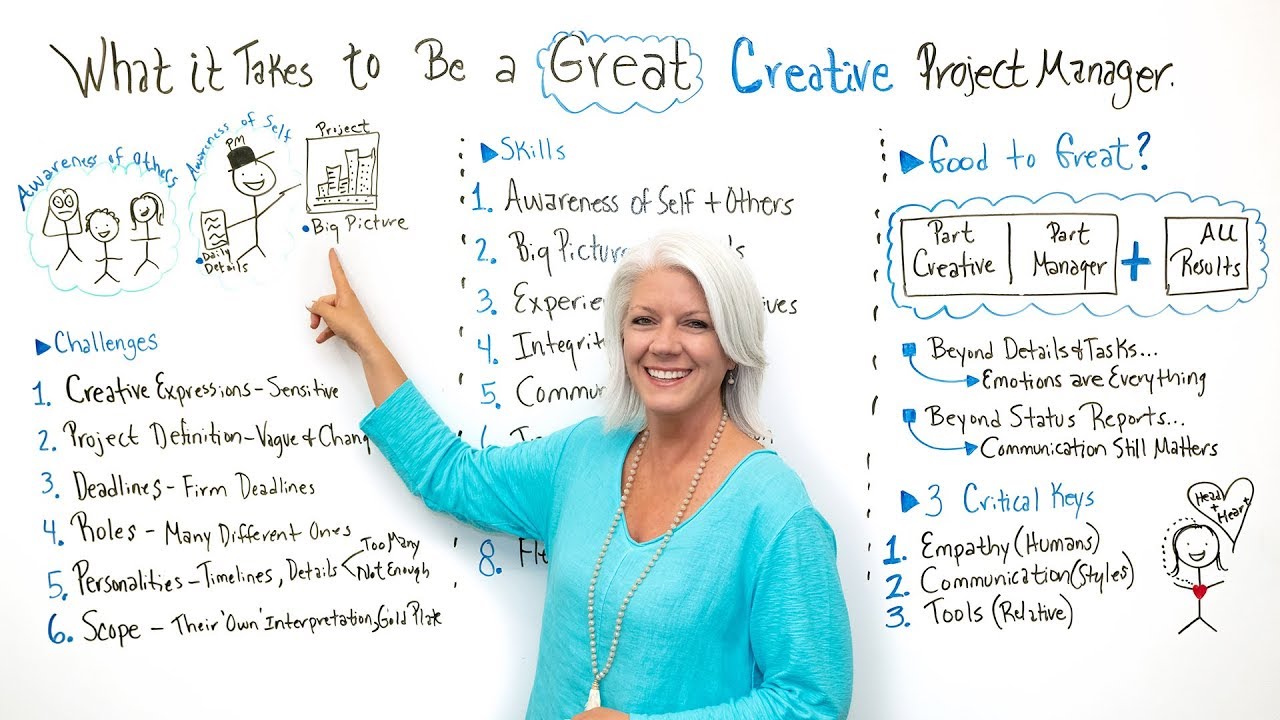 What it Takes to Be a Great Creative Project Manager.
Awareness of Others
Awareness of Self
PM
Daily
Details
Project
Big Picture
Challenges
1. Creative Expressions - Sensitive
2. Project Definition - Vague &
3. Deadlines - Firm Deadlines
4. Roles - Many Different Ones
5. Personalities - Timelines, Details
Too Many
Not Enough
6. Scope - Their 'Own' Interpretation, Gold Plate
Skills
1. Awareness of Self + Others
2. Big
3.
4.
5.
8.
Good to Great?
Part Creative
Part Manager
+
All Results
Beyond Details & Tasks...
Emotions are Everything
Beyond Status Reports...
Communication Still Matters
3 Critical Keys
1. Empathy (Humans)
2. Communication (Styles)
3. Tools (Relative)
Head
+
Heart